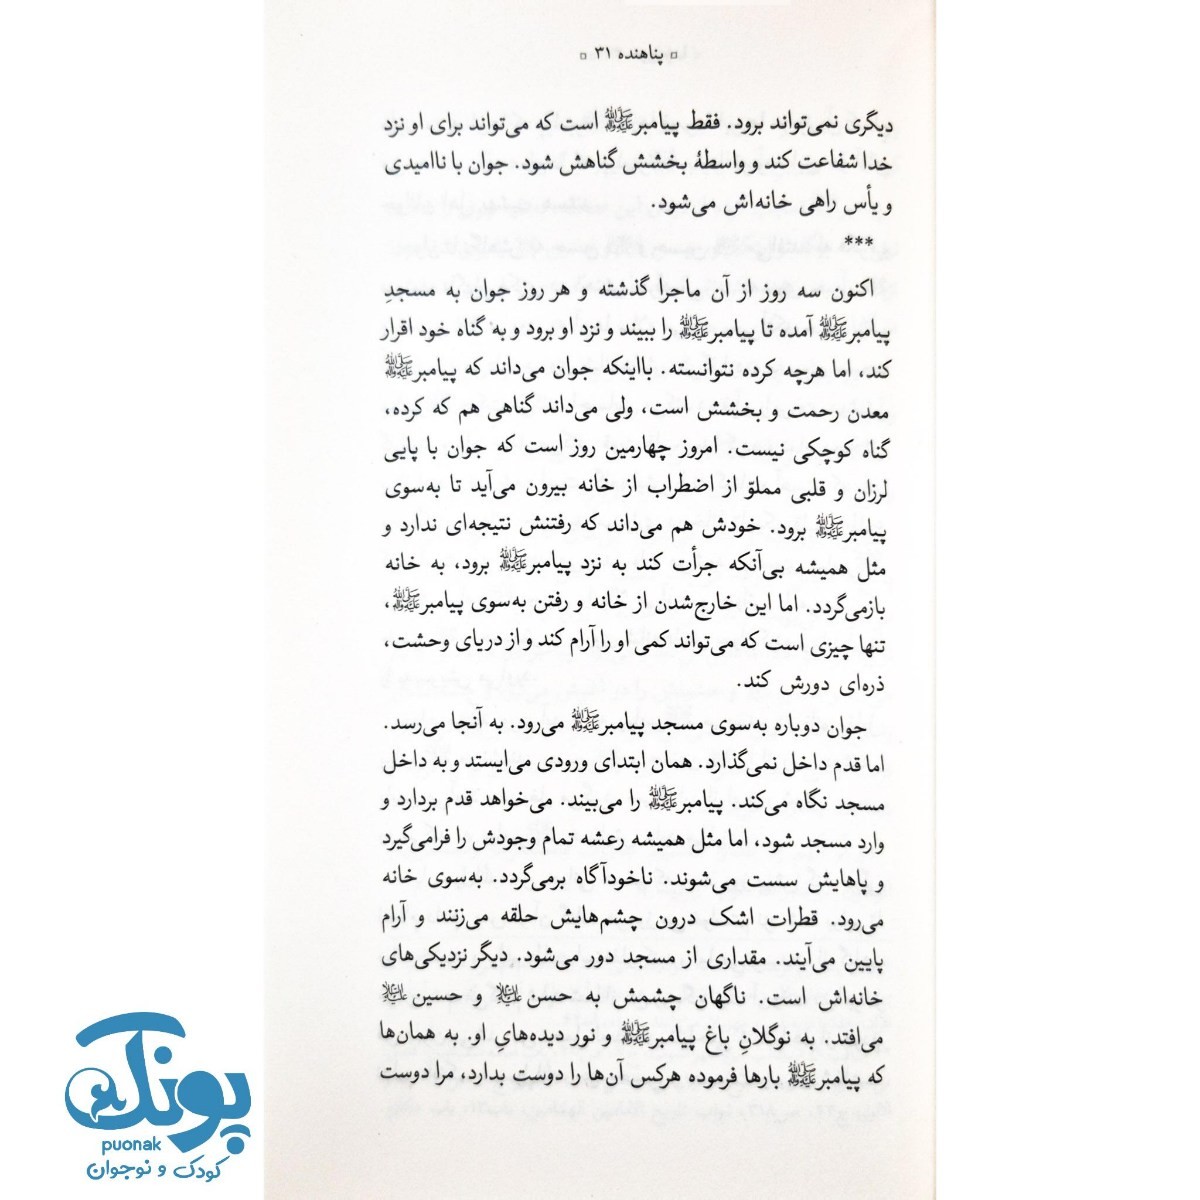 ▫ پناهنده ۳۱ ▫
دیگری نمی‌تواند برود. فقط پیامبرﷺ است که می‌تواند برای او نزد
خدا شفاعت کند و واسطهٔ بخشش گناهش شود. جوان با ناامیدی
و یأس راهی خانه‌اش می‌شود.
***
اکنون سه روز از آن ماجرا گذشته و هر روز جوان به مسجدِ
پیامبرﷺ آمده تا پیامبرﷺ را ببیند و نزد او برود و به گناه خود اقرار
کند، اما هرچه کرده نتوانسته. بااینکه جوان می‌داند که پیامبرﷺ
معدن رحمت و بخشش است، ولی می‌داند گناهی هم که کرده،
گناه کوچکی نیست. امروز چهارمین روز است که جوان با پایی
لرزان و قلبی مملوّ از اضطراب از خانه بیرون می‌آید تا به‌سوی
پیامبرﷺ برود. خودش هم می‌داند که رفتنش نتیجه‌ای ندارد و
مثل همیشه بی‌آنکه جرأت کند به نزد پیامبرﷺ برود، به خانه
بازمی‌گردد. اما این خارج‌شدن از خانه و رفتن به‌سوی پیامبرﷺ،
تنها چیزی است که می‌تواند کمی او را آرام کند و از دریای وحشت،
ذره‌ای دورش کند.
جوان دوباره به‌سوی مسجد پیامبرﷺ می‌رود. به آنجا می‌رسد.
اما قدم داخل نمی‌گذارد. همان ابتدای ورودی می‌ایستد و به داخل
مسجد نگاه می‌کند. پیامبرﷺ را می‌بیند. می‌خواهد قدم بردارد و
وارد مسجد شود، اما مثل همیشه رعشه تمام وجودش را فرامی‌گیرد
و پاهایش سست می‌شوند. ناخودآگاه برمی‌گردد. به‌سوی خانه
می‌رود. قطرات اشک درون چشم‌هایش حلقه می‌زنند و آرام
پایین می‌آیند. مقداری از مسجد دور می‌شود. دیگر نزدیکی‌های
خانه‌اش است. ناگهان چشمش به حسن علیه‌السلام و حسین علیه‌السلام
می‌افتد. به نوگلانِ باغ پیامبرﷺ و نور دیده‌هایِ او. به همان‌ها
که پیامبرﷺ بارها فرموده هرکس آن‌ها را دوست بدارد، مرا دوست
پونک
puonak
کودک و نوجوان